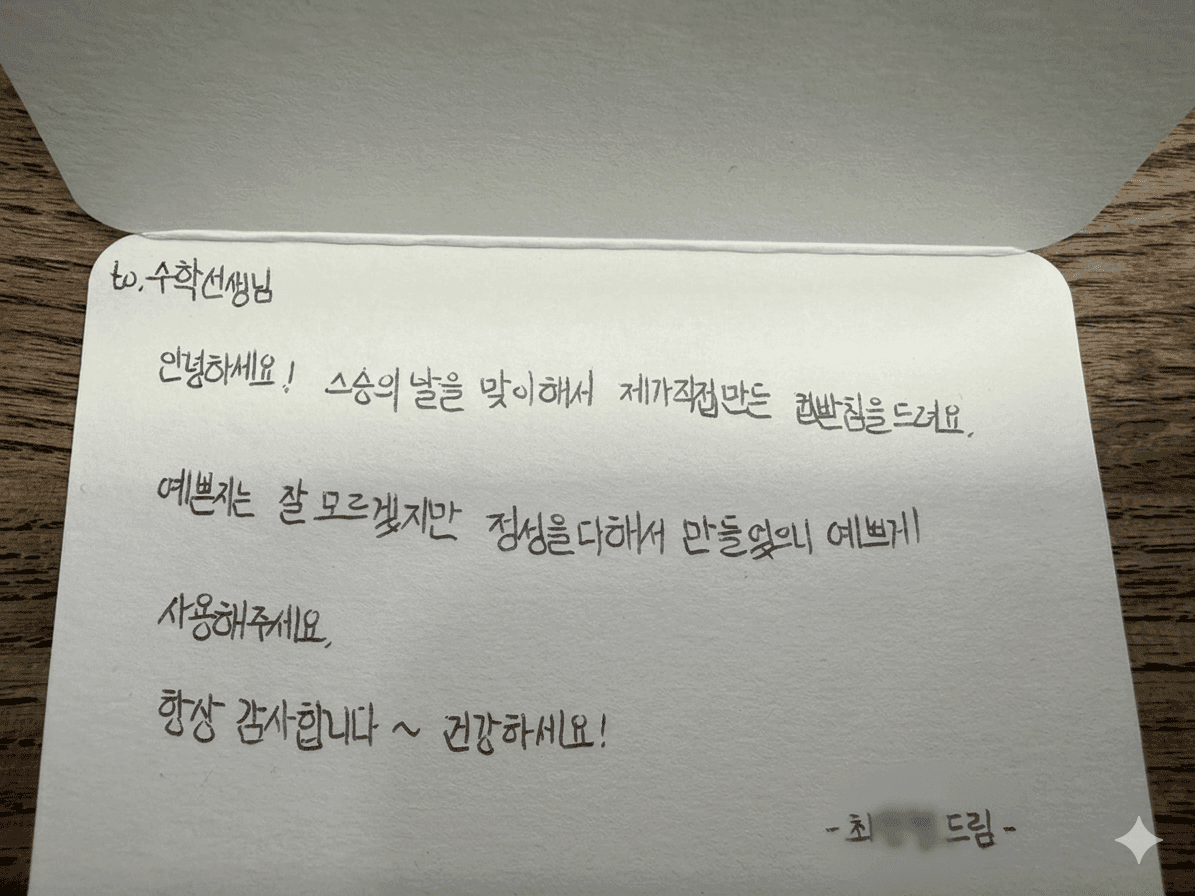 to. 수학선생님
안녕하세요! 스승의 날을 맞이해서 제가직접만든 컵받침을드려요.
예쁜지는 잘 모르겠지만 정성을다해서 만들었으니 예쁘게
사용해주세요.
항상 감사합니다 ~ 건강하세요!
- 최 드림 -